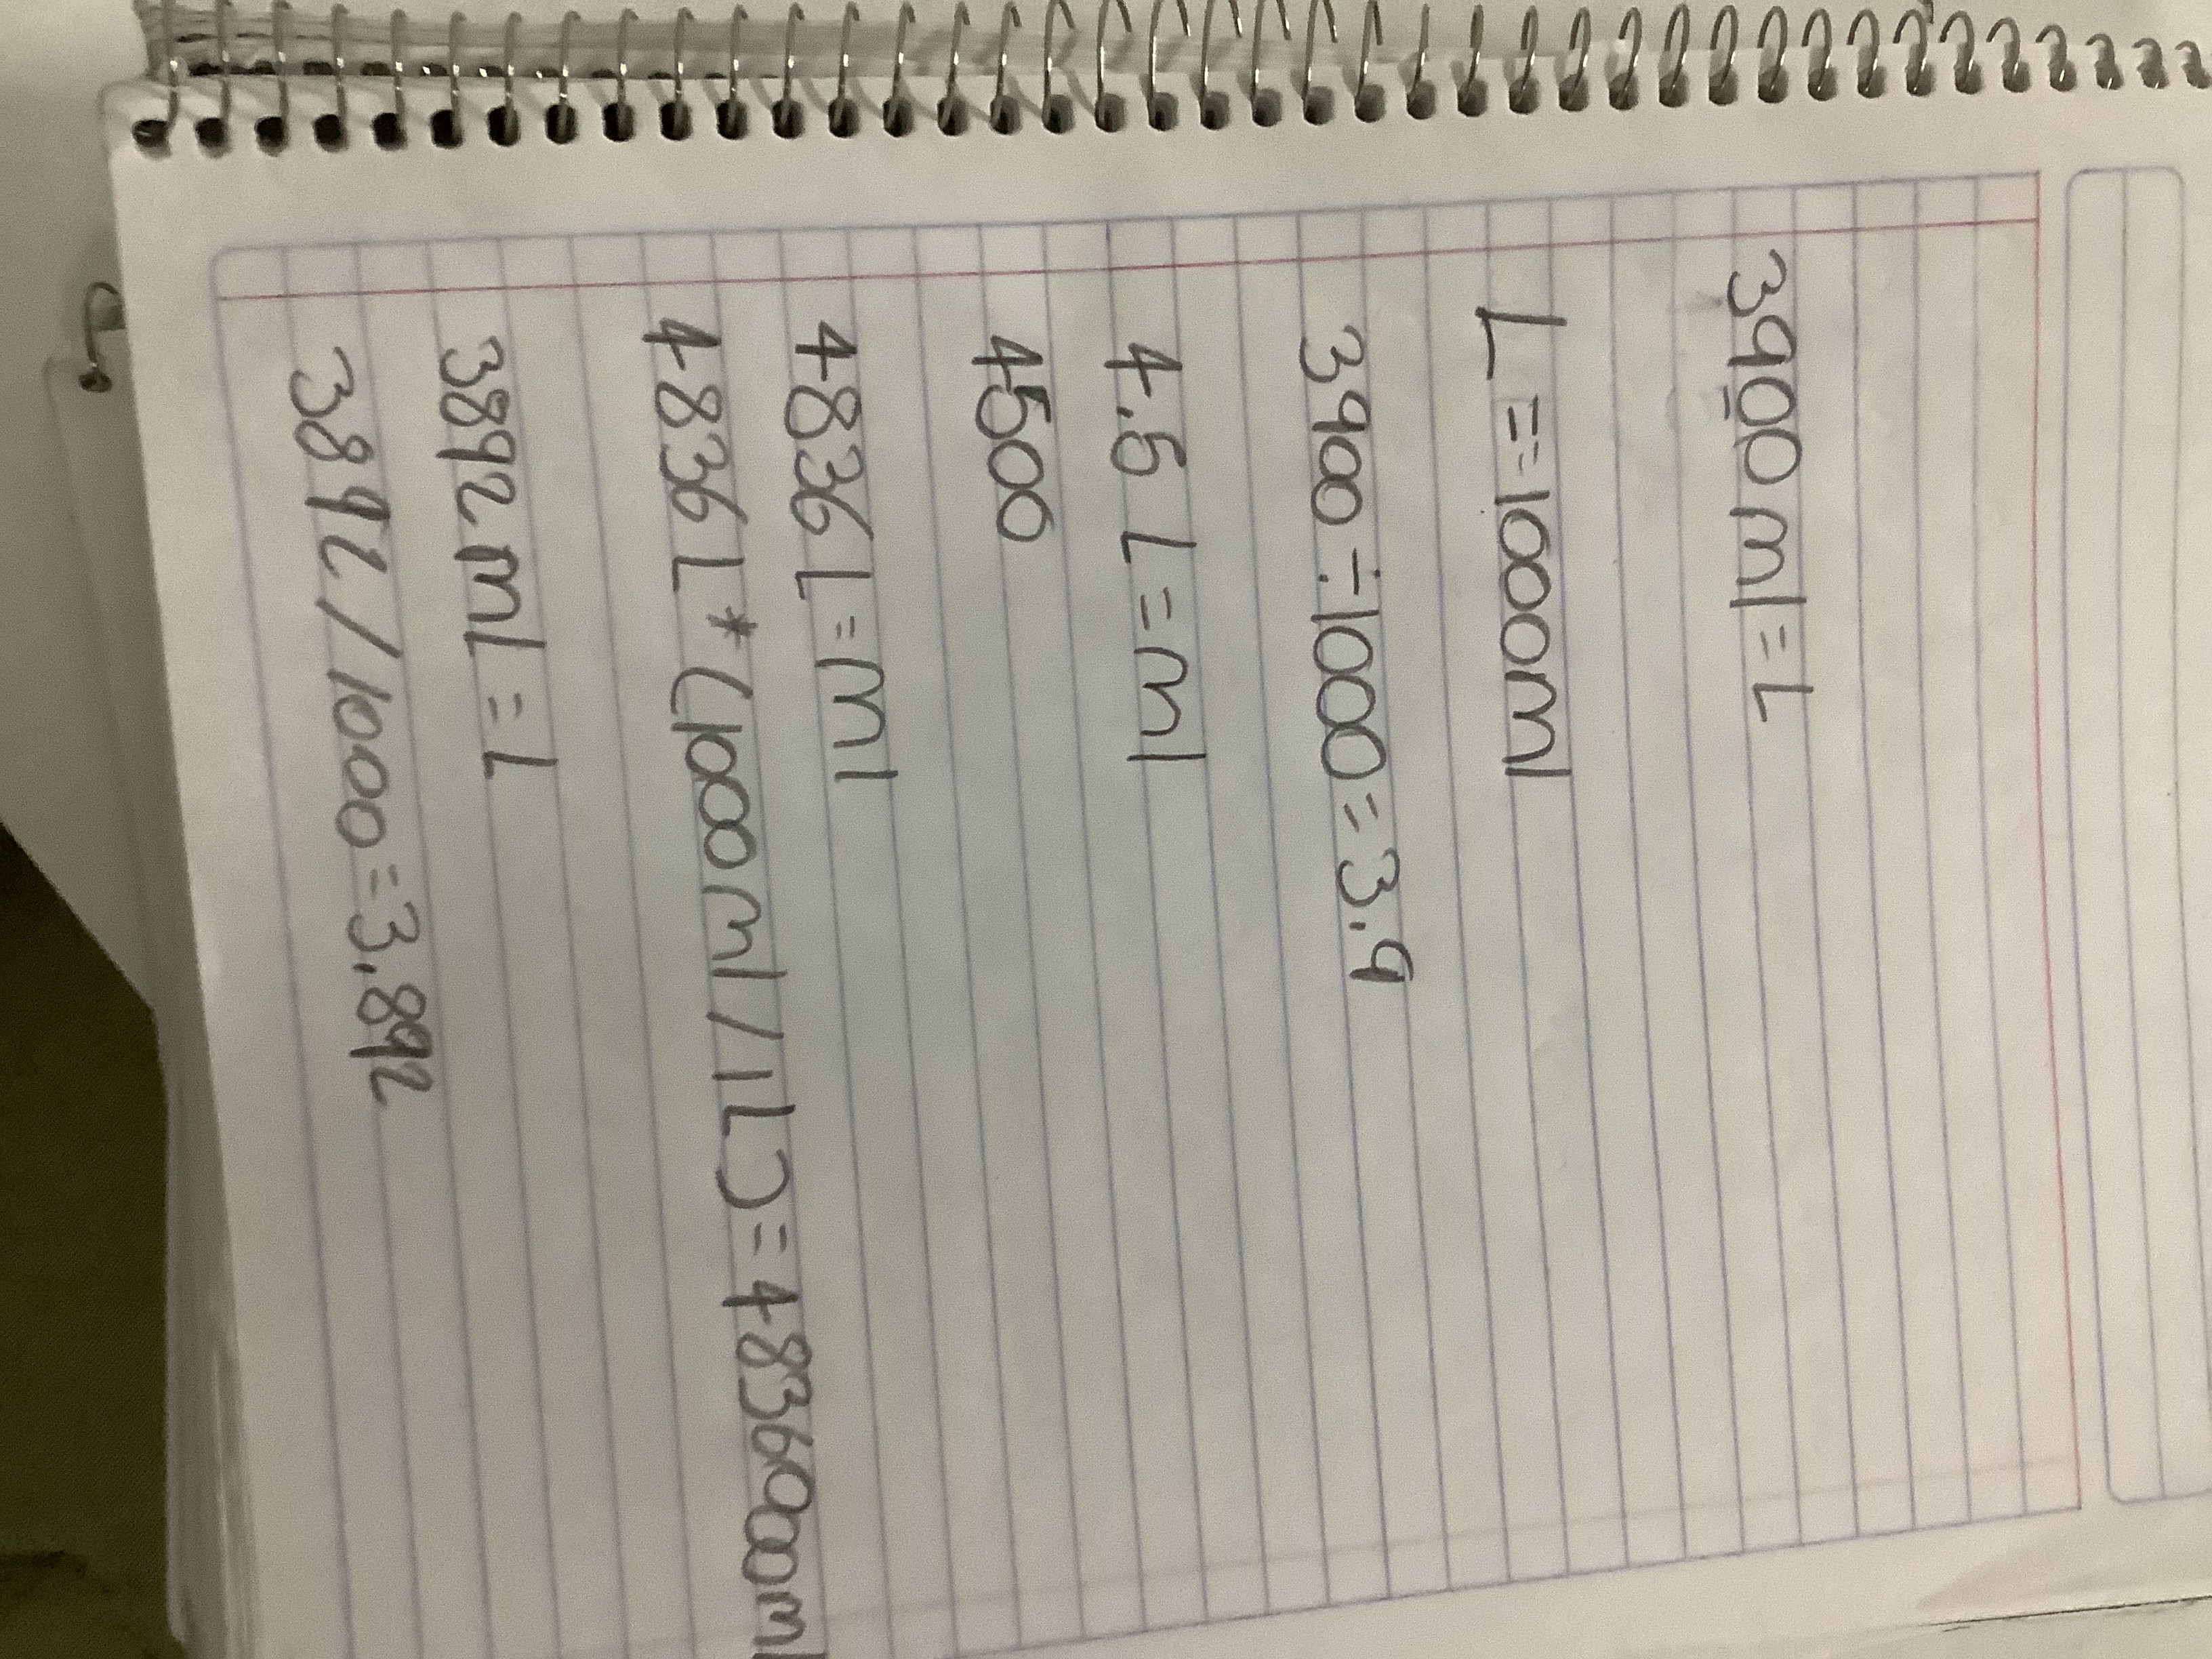 3900 ml = L
L = 1000 ml
3900 ÷ 1000 = 3.9
4.5 L = ml
4500
4836 L = ml
4836 L * (1000 ml / 1 L) = 4836000 ml
3892 ml = L
3892 / 1000 = 3.892